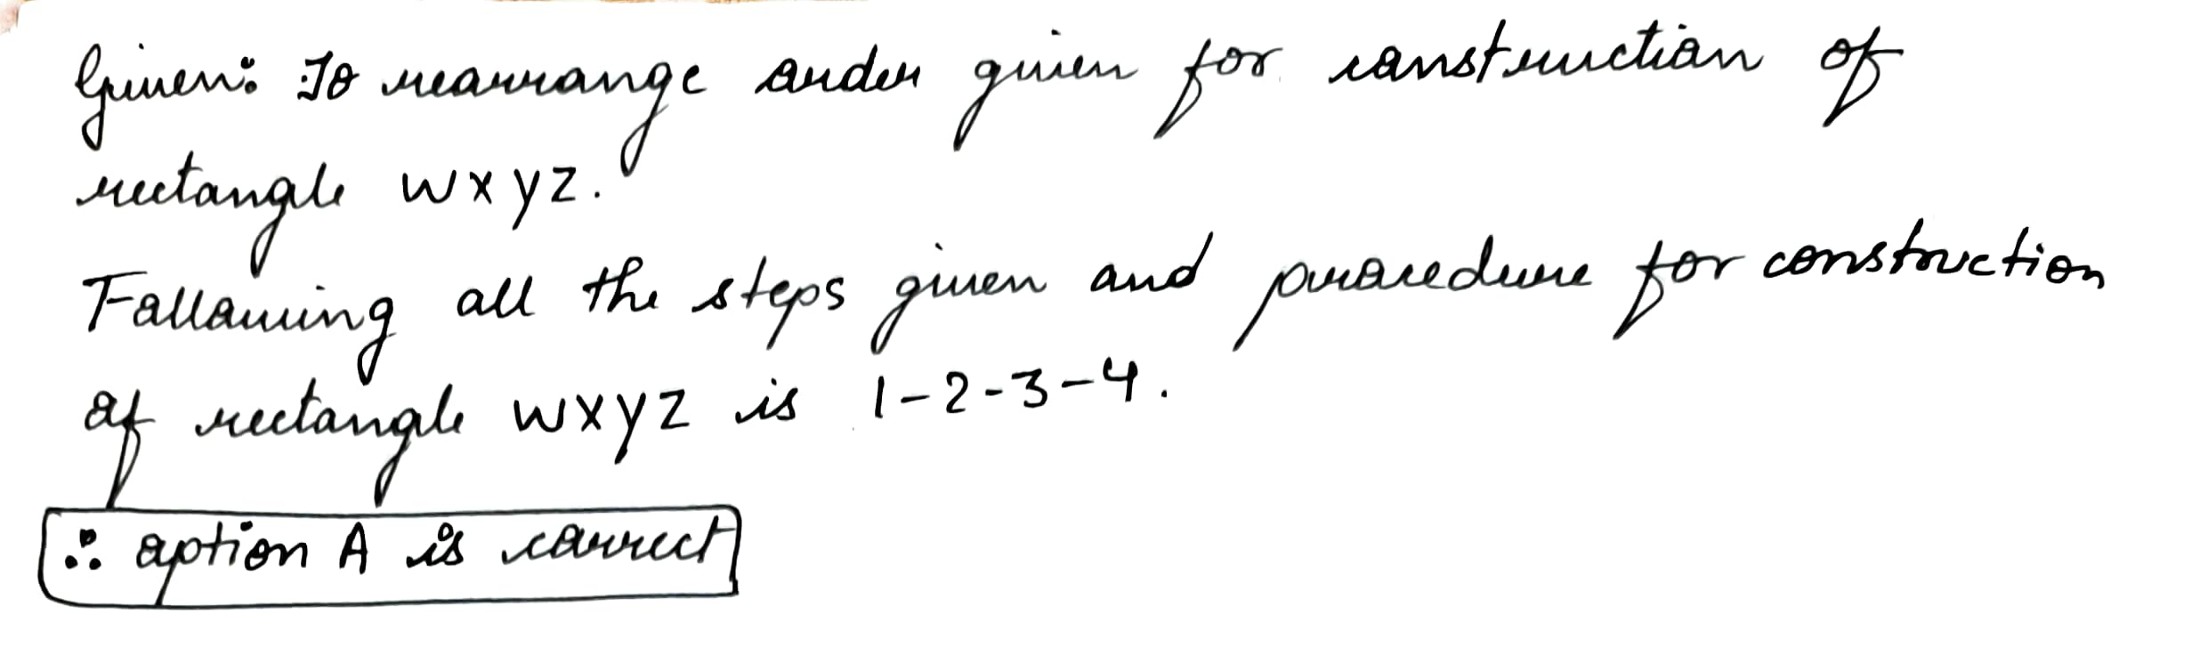 Given: To rearrange order given for construction of
rectangle WXYZ.
Following all the steps given and procedure for construction
of rectangle WXYZ is 1-2-3-4.
∴ option A is correct